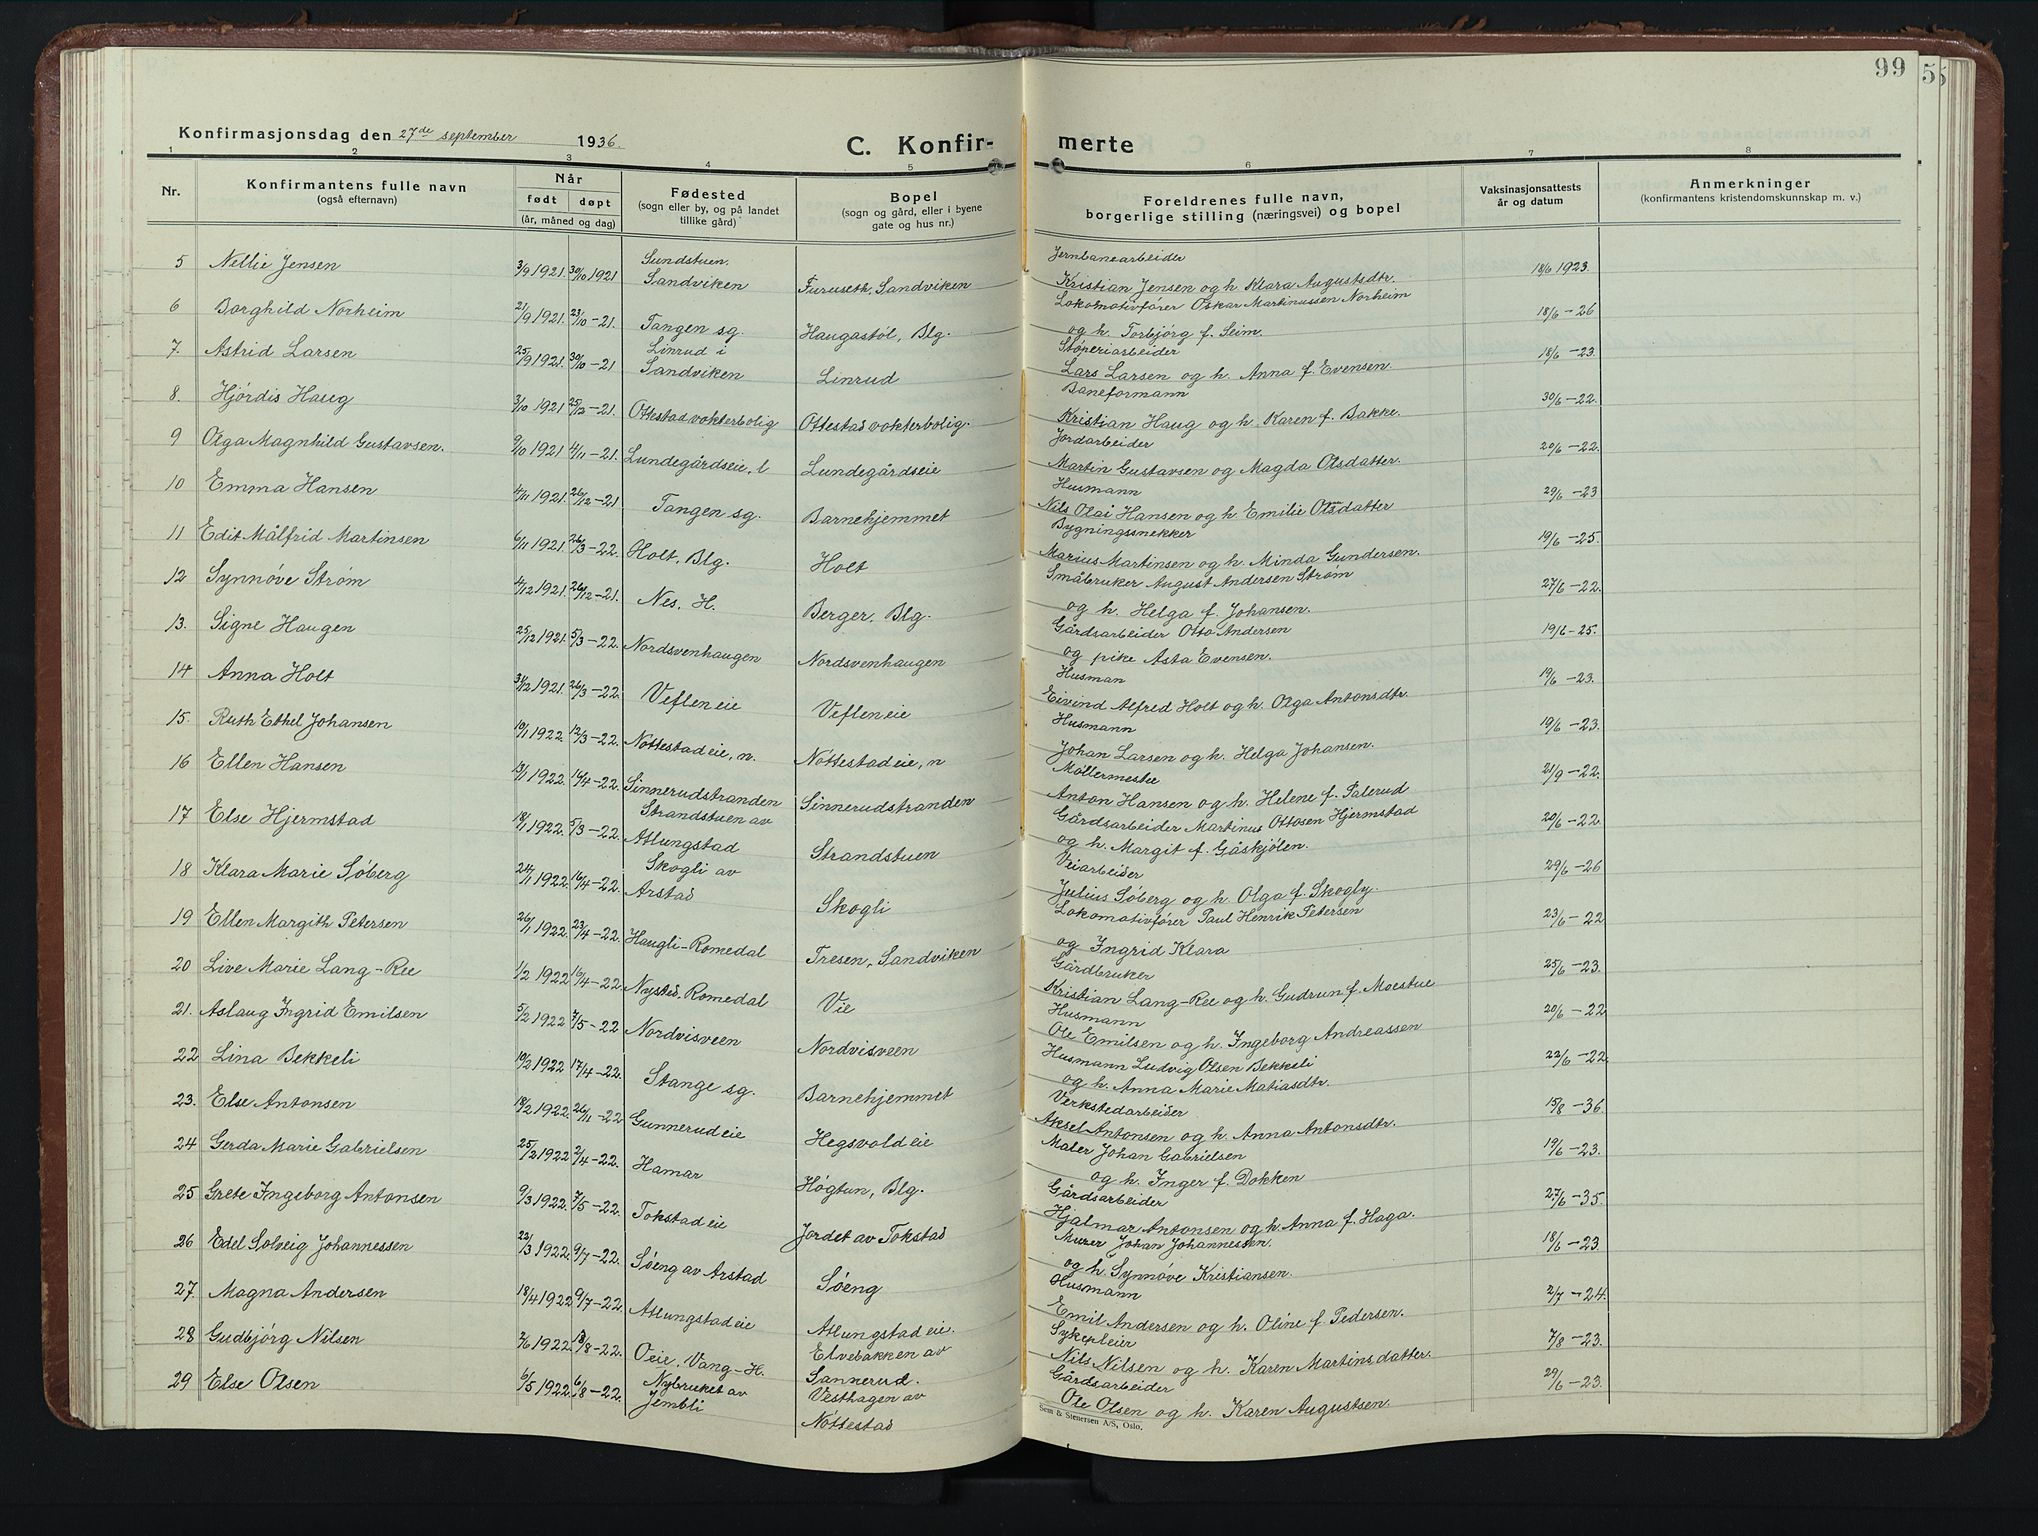 99
5
Konfirmasjonsdag den 27de september 1936.
C. Konfir- merte
1 2 3 4 5 6 7 8
Nr. Konfirmantens fulle navn (også efternavn) Når født døpt (år, måned og dag) Fødested (sogn eller by, og på landet tillike gård) Bopel (sogn og gård, eller i byene gate og hus nr.) Foreldrenes fulle navn, borgerlige stilling (næringsvei) og bopel Vaksinasjonsattests år og datum Anmerkninger (konfirmantens kristendomskunnskap m. v.)
5 Nellie Jensen 3/9 1921. 30/10 1921 Sundstuen. Sandviken Furuseth, Sandviken Jernbanearbeider Kristian Jensen og h. Klara Augustsdtr. 18/6 1923.
6 Borghild Norheim 21/9 1921. 23/10-21. Tangen sg. Haugastøl, Blg. Lokomotivfører Oskar Martinussen Norheim og h. Torbjørg f. Seim. 18/6-26
7. Astrid Larsen 25/9 1921. 30/10-21 Linrud i Sandviken Linrud Støperiarbeider Lars Larsen og h. Anna f. Evensen. 18/6-23.
8. Hjørdis Haug 3/10 1921 25/12-21. Ottestad vokterbolig Ottestad vokterbolig. Baneformann Kristian Haug og h. Karen f. Bakke. 30/6-22.
9 Olga Magnhild Gustavsen. 9/10 1921 4/11-21. Lundegårdseie, l Lundegårdseie Jordarbeider Martin Gustavsen og Magda Olsdatter. 20/6-22.
10 Emma Hansen 4/11 1921. 26/12-21 Tangen sg. Barnehjemmet Husmann Nils Olai Hansen og h. Emilie Olsdatter 29/6-23
11 Edit Målfrid Martinsen 6/11 1921. 26/3-22. Holt, Blg. Holt Bygningssnekker Marius Martinsen og h. Minda Gundersen. 19/6-25.
12 Synnøve Strøm 4/12 1921. 26/12-21. Nes, H. Berger, Blg. Småbruker August Andersen Strøm og h. Helga f. Johansen. 27/6-22.
13. Signe Haugen 25/12 1921. 5/3-22. Nordsvenhaugen Nordsvenhaugen Gårdsarbeider Otto Andersen og pike Asta Evensen. 19/6-25.
14 Anna Holt 31/12 1921. 26/3-22. Vefleneie Vefleneie Husman Eivind Alfred Holt og h. Olga Antonsdtr. 19/6-23.
15. Ruth Ethel Johansen 10/1 1922. 12/3-22. Nøttestadeie, n. Nøttestadeie, n Husmann Johan Larsen og h. Helga Johansen. 19/6-23
16 Ellen Hansen 13/1 1922. 16/4-22. Sinnerudstranden Sinnerudstranden Møllermester Anton Hansen og h. Helene f. Palerud 21/9-22.
17 Else Hjermstad 18/1 1922. 5/3-22. Strandstuen av Atlungstad Strandstuen Gårdsarbeider Martinus Ottosen Hjermstad og h. Margit f. Gåskjølen. 20/6-22
18 Klara Marie Søberg 24/1 1922. 16/4-22. Skogli av Arstad Skogli Veiarbeider Julius Søberg og h. Olga f. Skogly. 29/6-26
19 Ellen Margith Petersen 26/1 1922. 23/4-22. Haugli-Romedal Tresen, Sandviken Lokomotivfører Paul Henrik Petersen og Ingrid Klara 23/6-22
20 Live Marie Lang-Ree 1/2 1922 16/4-22 Nysted, Romedal Vie Gårdbruker Kristian Lang-Ree og h. Gudrun f. Moestue 25/6-23.
21. Aslaug Ingrid Emilsen 5/2 1922 7/5-22 Nordvisveen Nordvisveen Husmann Ole Emilsen og h. Ingeborg Andreassen 20/6-22
22 Lina Bekkeli 10/2 1922 17/4-22. Stange sg. Barnehjemmet Husmann Ludvig Olsen Bekkeli og h. Anna Marie Matiasdtr. 22/6-22.
23. Else Antonsen 18/2 1922. 26/11-22 Gunnerudeie Hegsvoldeie Verkstedarbeider Aksel Antonsen og h. Anna Antonsdtr. 15/8-36.
24 Gerda Marie Gabrielsen 25/2 1922 2/4-22. Hamar Høgtun, Blg. Maler Johan Gabrielsen og h. Inger f. Dokken 19/6-23.
25 Grete Ingeborg Antonsen 9/3 1922. 7/5-22. Tokstadeie Jordet av Tokstad Gårdsarbeider Hjalmar Antonsen og h. Anna f. Haga. 27/6-35.
26 Edel Solveig Johannessen 22/3 1922. 9/7-22. Søeng av Arstad Søeng Murer Johan Johannessen. og h. Synnøve Kristiansen. 18/6-23.
27. Magna Andersen 18/4 1922 9/7-22. Atlungstadeie Atlungstadeie. Husmann Emil Andersen og h. Oline f. Pedersen. 2/7-24.
28 Gudbjørg Nilsen 2/6 1922. 13/8-22. Oeie, Vang-H. Elvebakken av Sannerud. Sykepleier Nils Nilsen og h. Karen Martinsdatter. 7/8-23.
29 Else Olsen 6/5 1922. 6/8-22. Nybruket av Jembli Vesthagen av Nøttestad Gårdsarbeider Ole Olsen og h. Karen Augustsen. 29/6-23.
Sem & Stenersen A/S, Oslo.